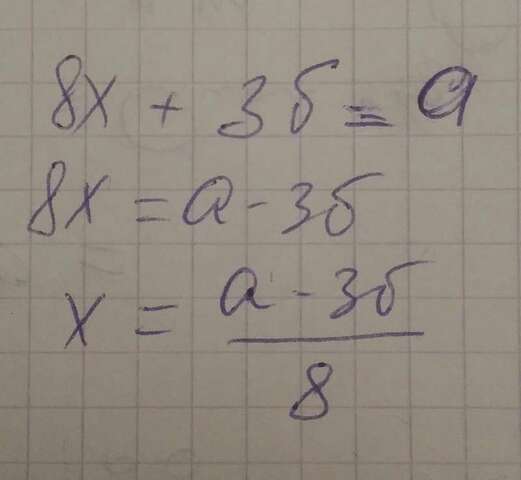 8x + 3б = a
8x = a - 3б
x = a - 3б
8